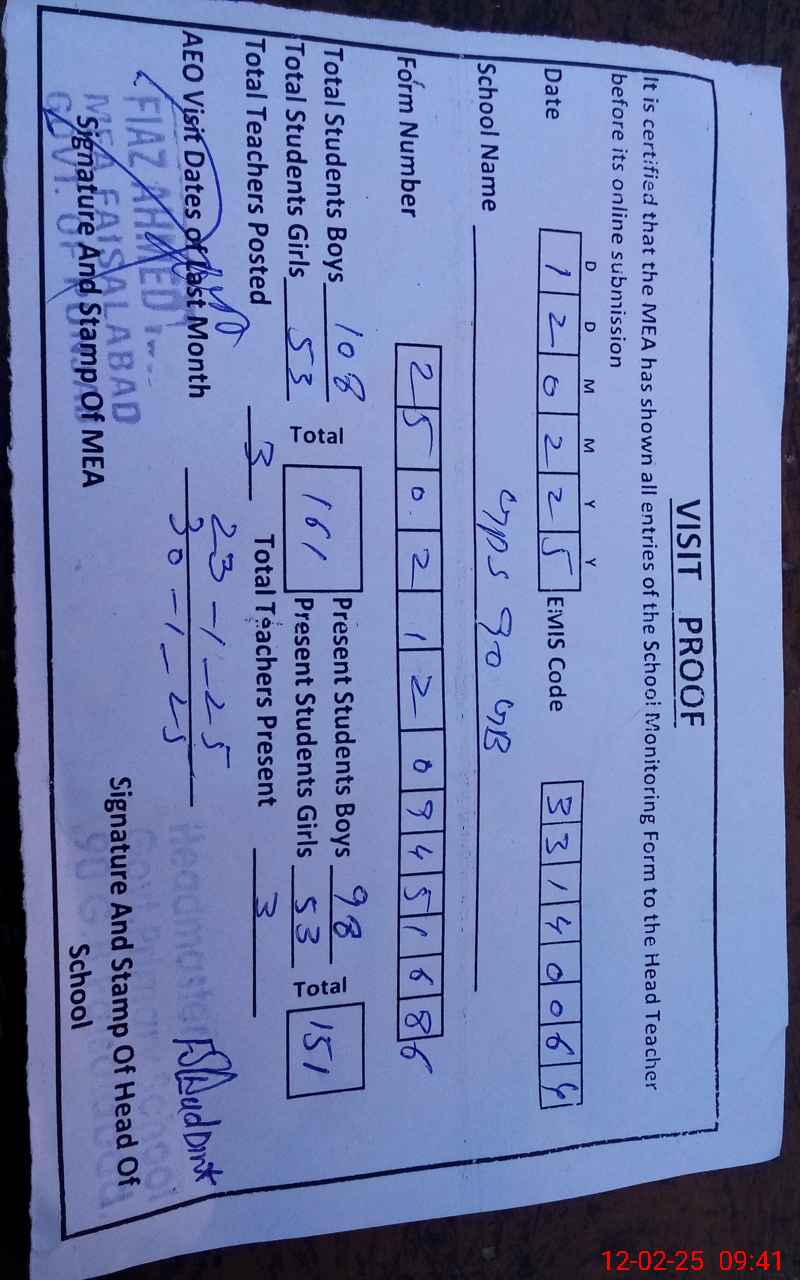 VISIT PROOF
It is certified that the MEA has shown all entries of the School Monitoring Form to the Head Teacher
before its online submission
D D M M Y Y
Date 1 2 0 2 2 5 EMIS Code 3 3 1 4 0 0 6 4
School Name GPS 90 GB
Form Number 2 5 0 2 1 2 0 9 4 5 1 6 8 6
Total Students Boys 108 Total 161 Present Students Boys 98 Total 151
Total Students Girls 53 Present Students Girls 53
Total Teachers Posted 3 Total Teachers Present 3
AEO Visit Dates of Last Month 23-1-25
30-1-25
FIAZ AHMED
MEA FAISALABAD
GOVT. OF PUNJAB
Signature And Stamp Of MEA
Headmaster
Signature And Stamp Of Head Of
School
12-02-25 09:41